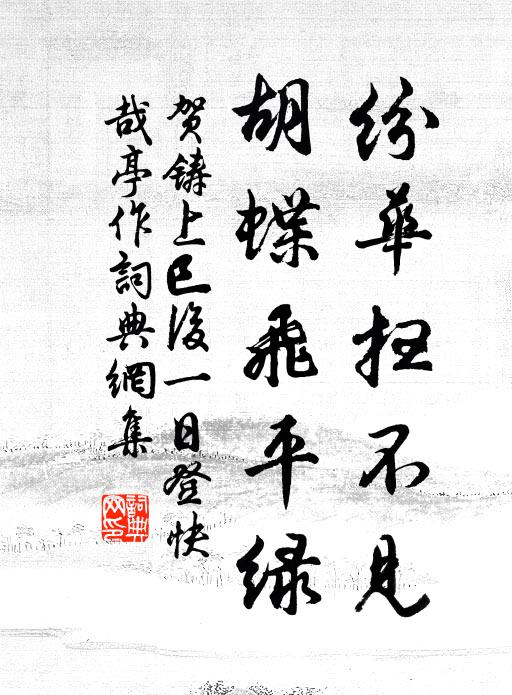 纷华扫不见
胡蝶飞平绿
贺铸上巳后一日登快
哉亭作词典网集
词典
网印